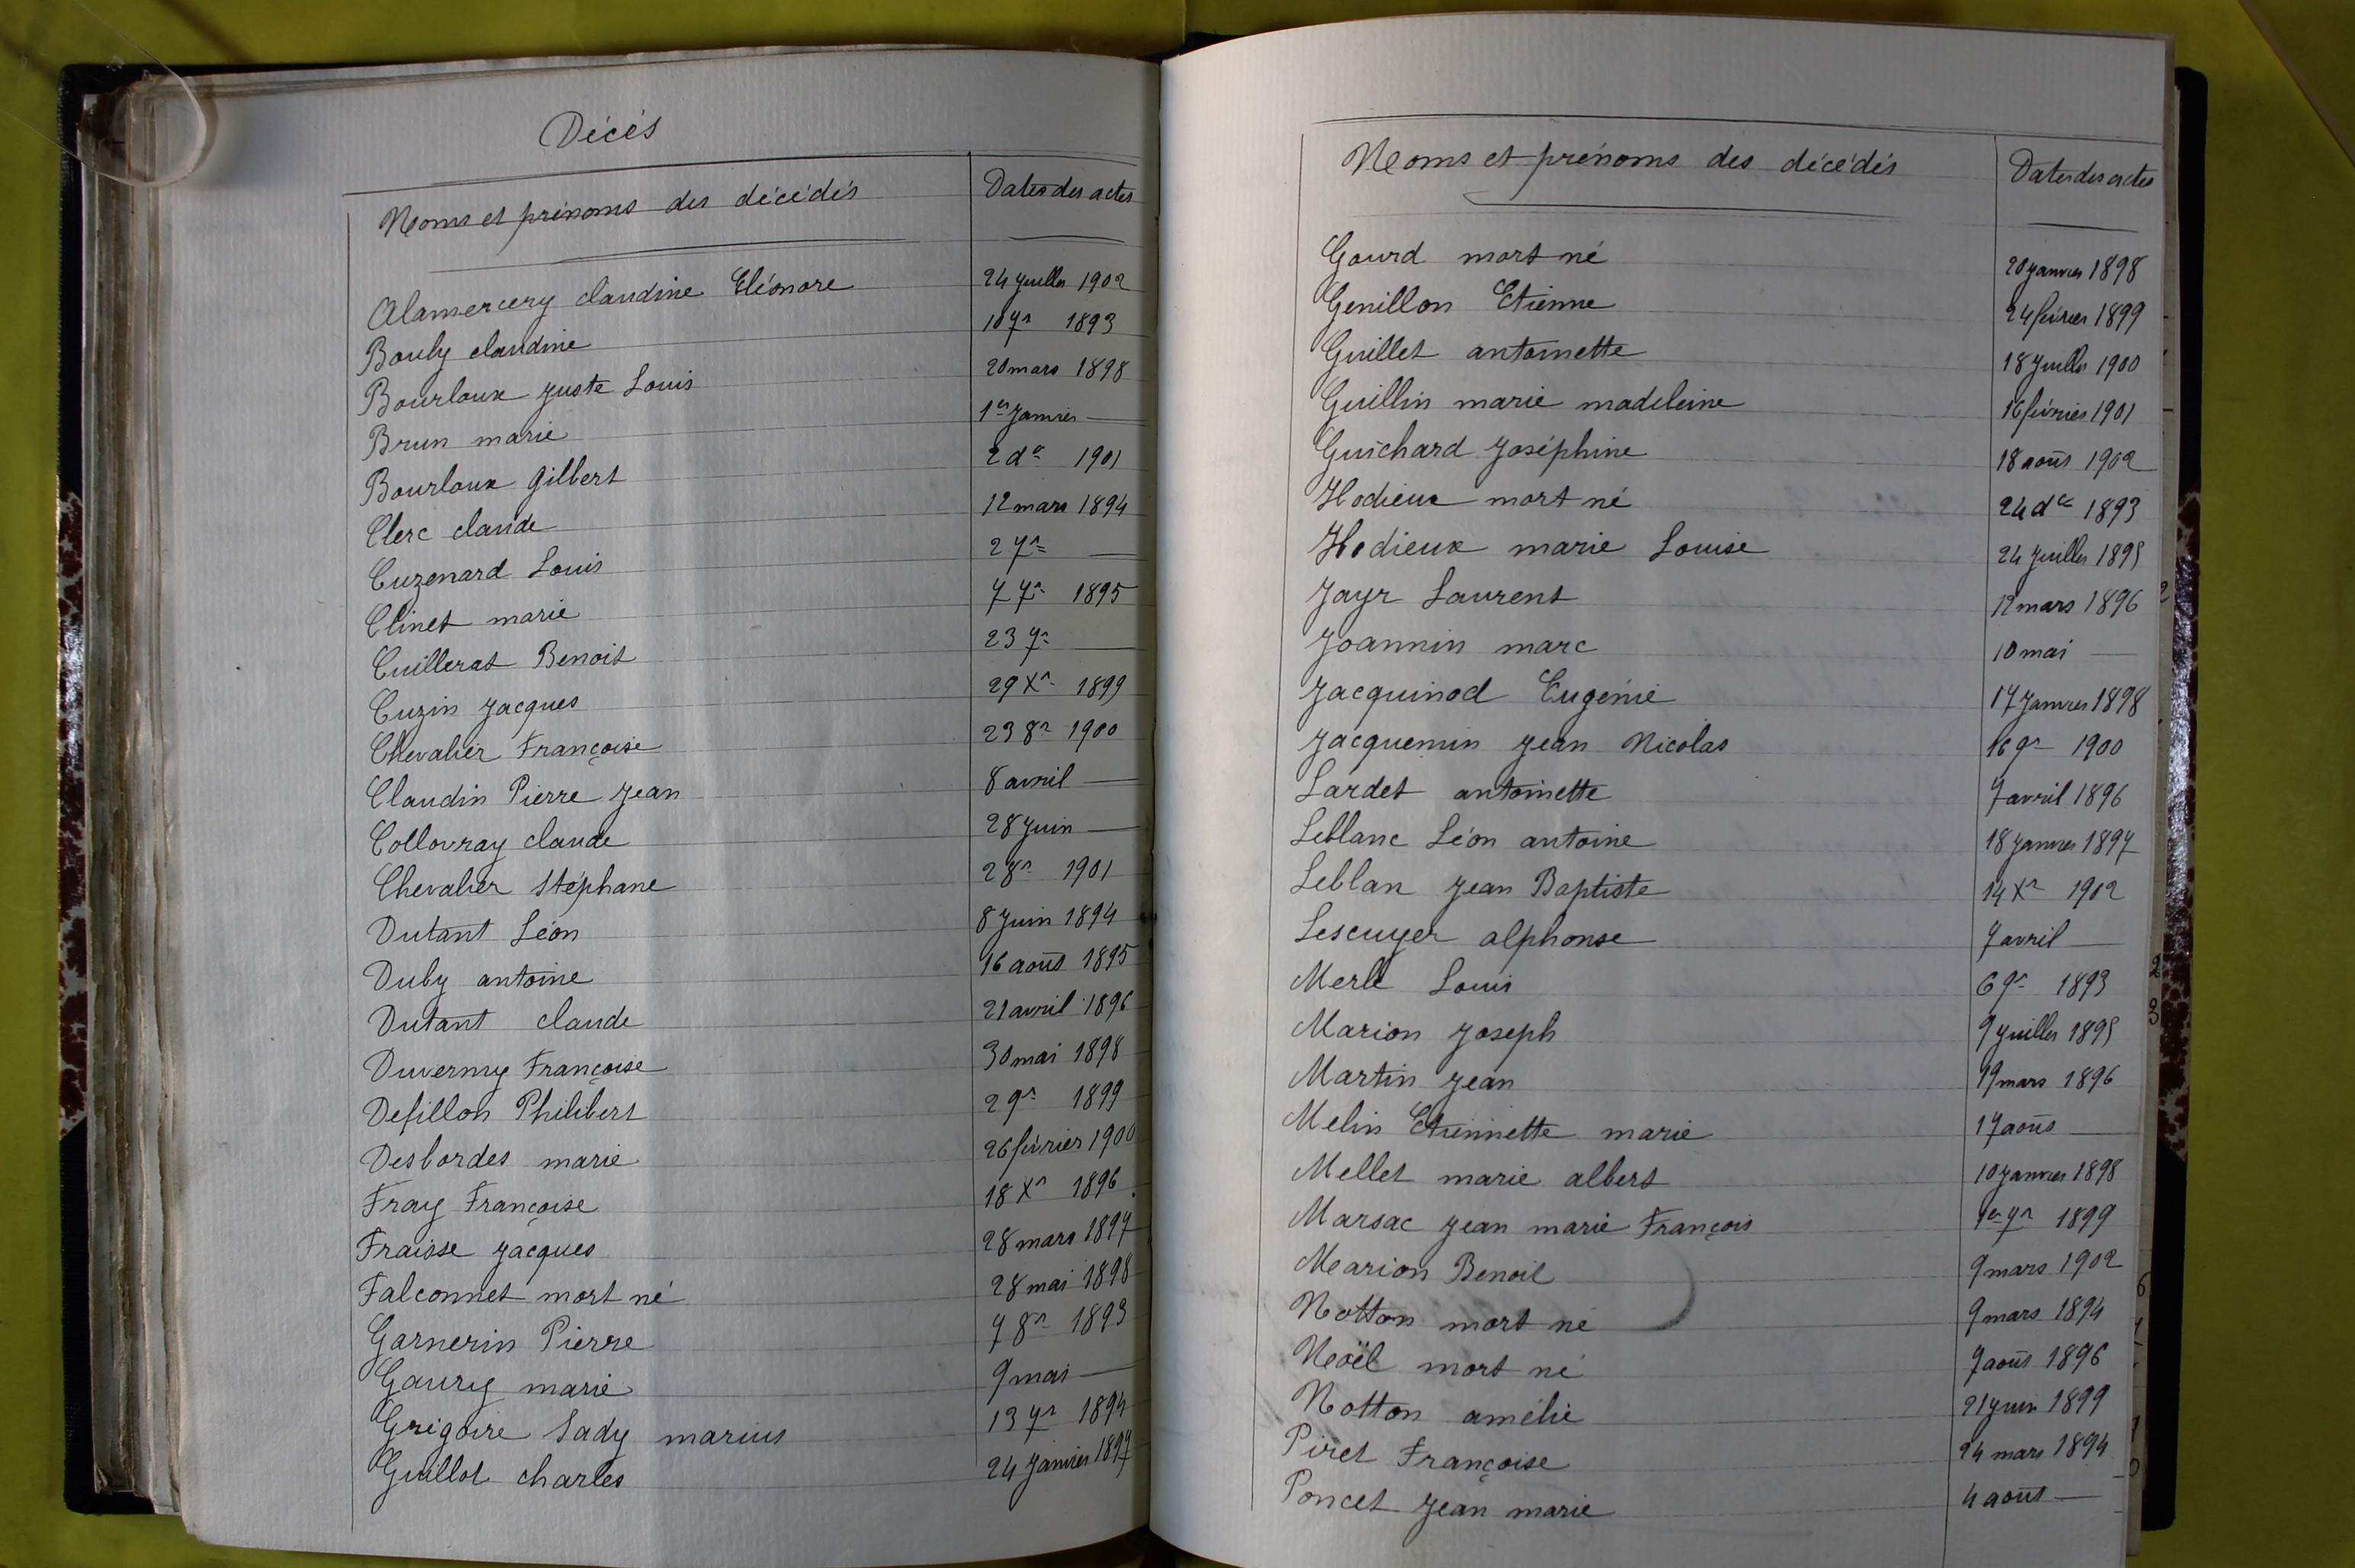 Décès
Noms et prénoms des décédés Dates des actes
Alamercery claudine Eléonore 24 Juillet 1902
Bouly claudine 10 7re 1893
Bourloux Juste Louis 20 mars 1898
Brun marie 1er Janvier —
Bourloux Gilbert 2 do 1901
Clerc claude 12 mars 1894
Cuzenard Louis 2 7re —
Clinet marie 7 7re 1895
Cuillerat Benoit 23 7re —
Cuzin Jacques 29 Xre 1899
Chevalier Françoise 23 8re 1900
Claudin Pierre Jean 8 avril —
Collovray claude 28 Juin —
Chevalier Stéphane 2 8re 1901
Dutant Léon 8 Juin 1894
Duby antoine 16 août 1895
Dutant claude 21 avril 1896
Duverny Françoise 30 mai 1898
Defillon Philibert 2 9re 1899
Desbordes marie 26 février 1900
Fray Françoise 18 Xre 1896
Fraisse Jacques 28 mars 1897
Falconnet mort né 28 mai 1898
Garnerin Pierre 7 8re 1893
Gaury marie 9 mai —
Grégoire Sady marius 13 7re 1894
Guillot charles 24 Janvier 1897
Noms et prénoms des décédés Dates des actes
Gourd mort né 20 Janvier 1898
Genillon Etienne 24 février 1899
Guillet antoinette 18 Juillet 1900
Guillin marie madeleine 16 février 1901
Guichard Joséphine 18 août 1902
Hodieux mort né 24 de 1893
Hodieux marie Louise 24 Juillet 1895
Jayr Laurent 12 mars 1896
Joannin marc 10 mai —
Jacquinod Eugénie 17 Janvier 1898
Jacquemin Jean Nicolas 16 9re 1900
Lardet antoinette 7 avril 1896
Leblanc Léon antoine 18 Janvier 1897
Leblan Jean Baptiste 14 Xre 1902
Lescuyer alphonse 7 avril —
Merle Louis 6 9re 1893
Marion Joseph 9 Juillet 1895
Martin Jean 19 mars 1896
Melin Etiennette marie 17 août —
Mellet marie albert 10 Janvier 1898
Marsac Jean marie François 1er 7re 1899
Marion Benoit 9 mars 1902
Notton mort né 9 mars 1894
Noël mort né 7 août 1896
Notton amélie 21 Juin 1899
Piret Françoise 24 mars 1894
Poncet Jean marie 4 août —